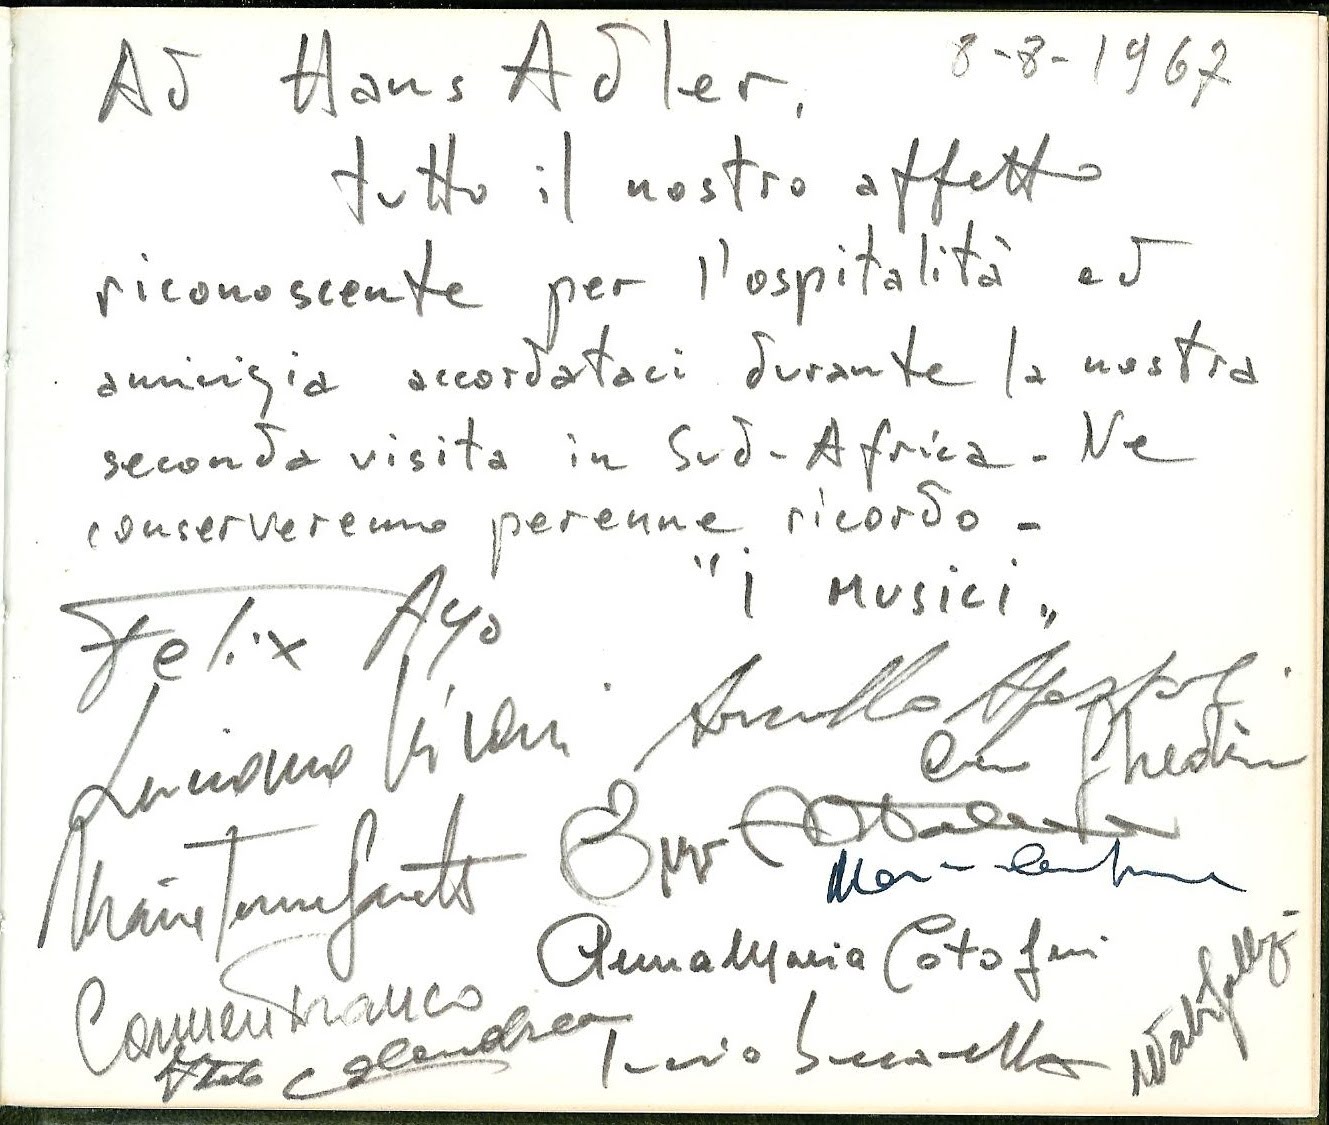 8-8-1967
Ad Hans Adler,
tutto il nostro affetto
riconoscente per l'ospitalità ed
amicizia accordataci durante la nostra
seconda visita in Sud-Africa - Ne
conserveremo perenne ricordo -
"i Musici"
Felix Ayo
Arnaldo Apostoli
Luciano Vicari
Enzo Altobelli
Maria Teresa Garatti
Anna Maria Cotogni
Carmen Franco
Italo Colandrea
Lucio Buccarella